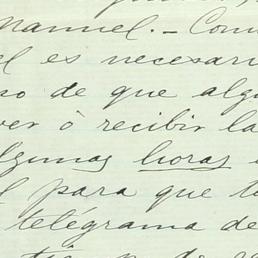 Manuel. - Com
el es necesari
so de que algu
ver ó recibir la
algunas horas
l para que t
telégrama de